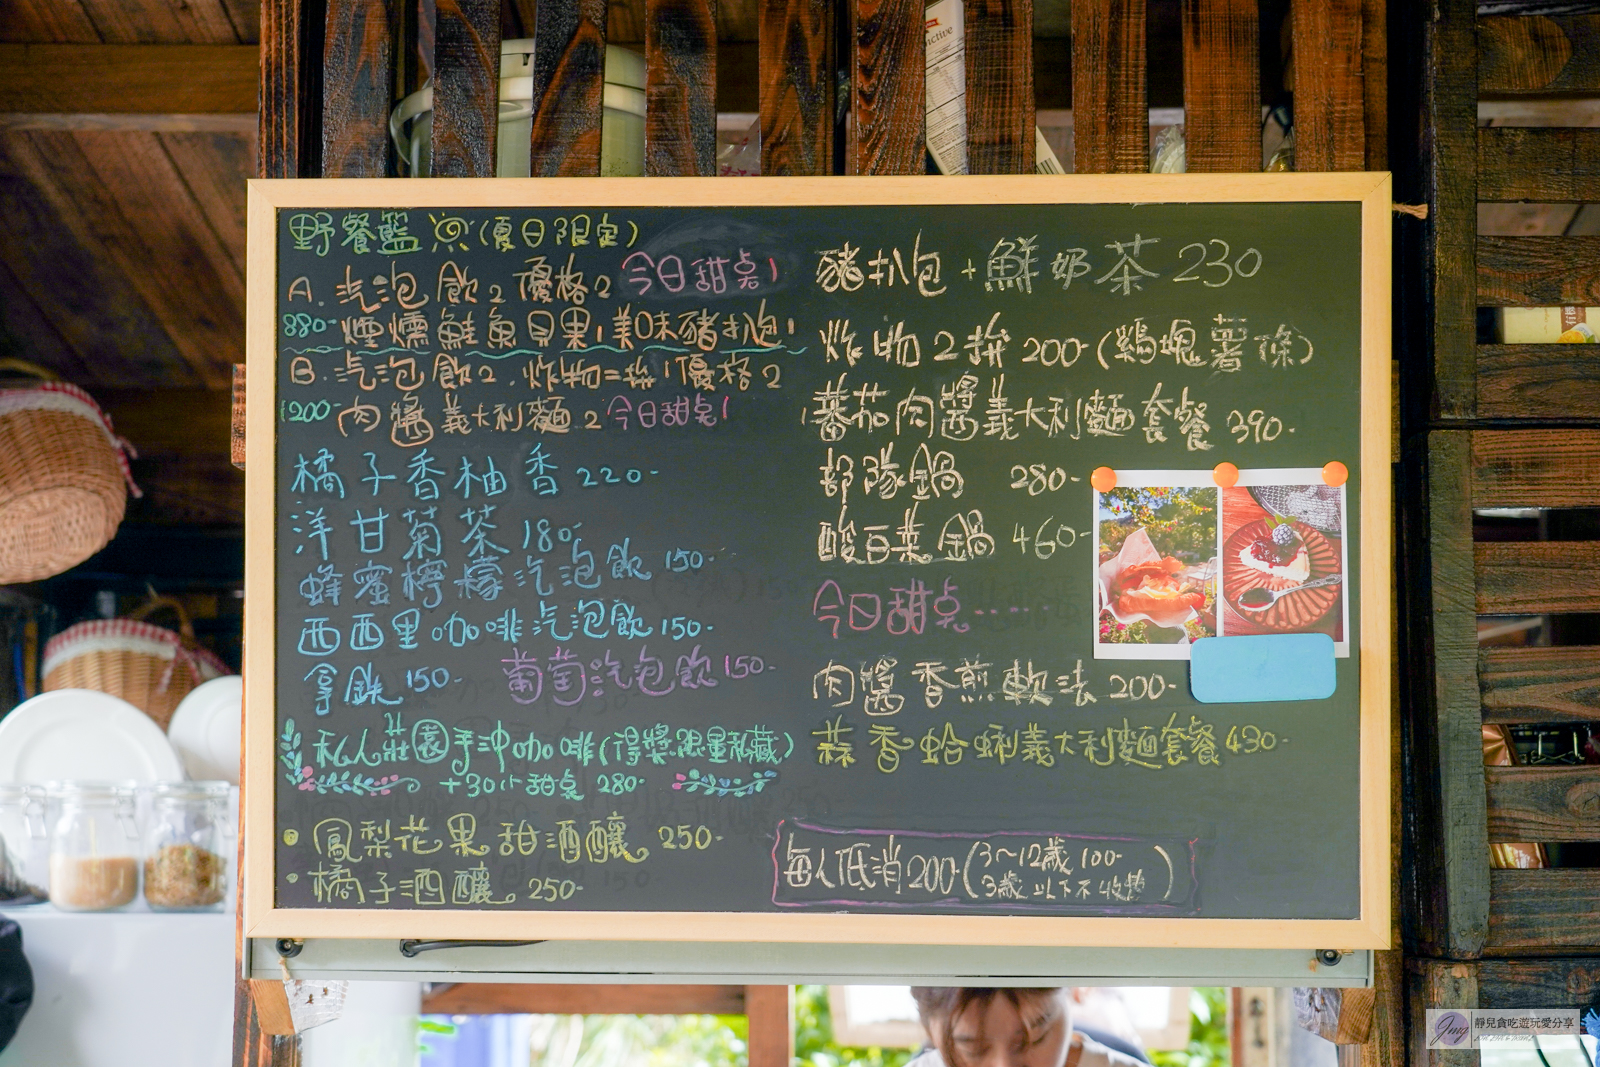 野餐籃 (夏日限定)
A. 汽泡飲2 優格2 今日甜点1
880- 煙燻鮭魚貝果1 美味豬扒包1
B. 汽泡飲2. 炸物二拚1 優格2
1200- 肉醬義大利麵2 今日甜点1
橘子香柚香 220-
洋甘菊茶 180-
蜂蜜檸檬汽泡飲 150-
西西里咖啡汽泡飲 150-
拿鉄 150- 葡萄汽泡飲 150-
私人莊園手沖咖啡(得獎限量私藏)
+30小甜点 280-
• 鳳梨花果甜酒釀 250-
• 橘子酒釀 250-
豬扒包+鮮奶茶 230
炸物2拚 200-(鷄塊薯條)
蕃茄肉醬義大利麵套餐 390-
部隊鍋 280-
酸白菜鍋 460-
今日甜点……
肉醬香煎軟法 200-
蒜香蛤蜊義大利麵套餐 430-
每人低消200-(3～12歲 100-
3歲以下不收費)
nctive
Jing 靜兒貪吃遊玩愛分享